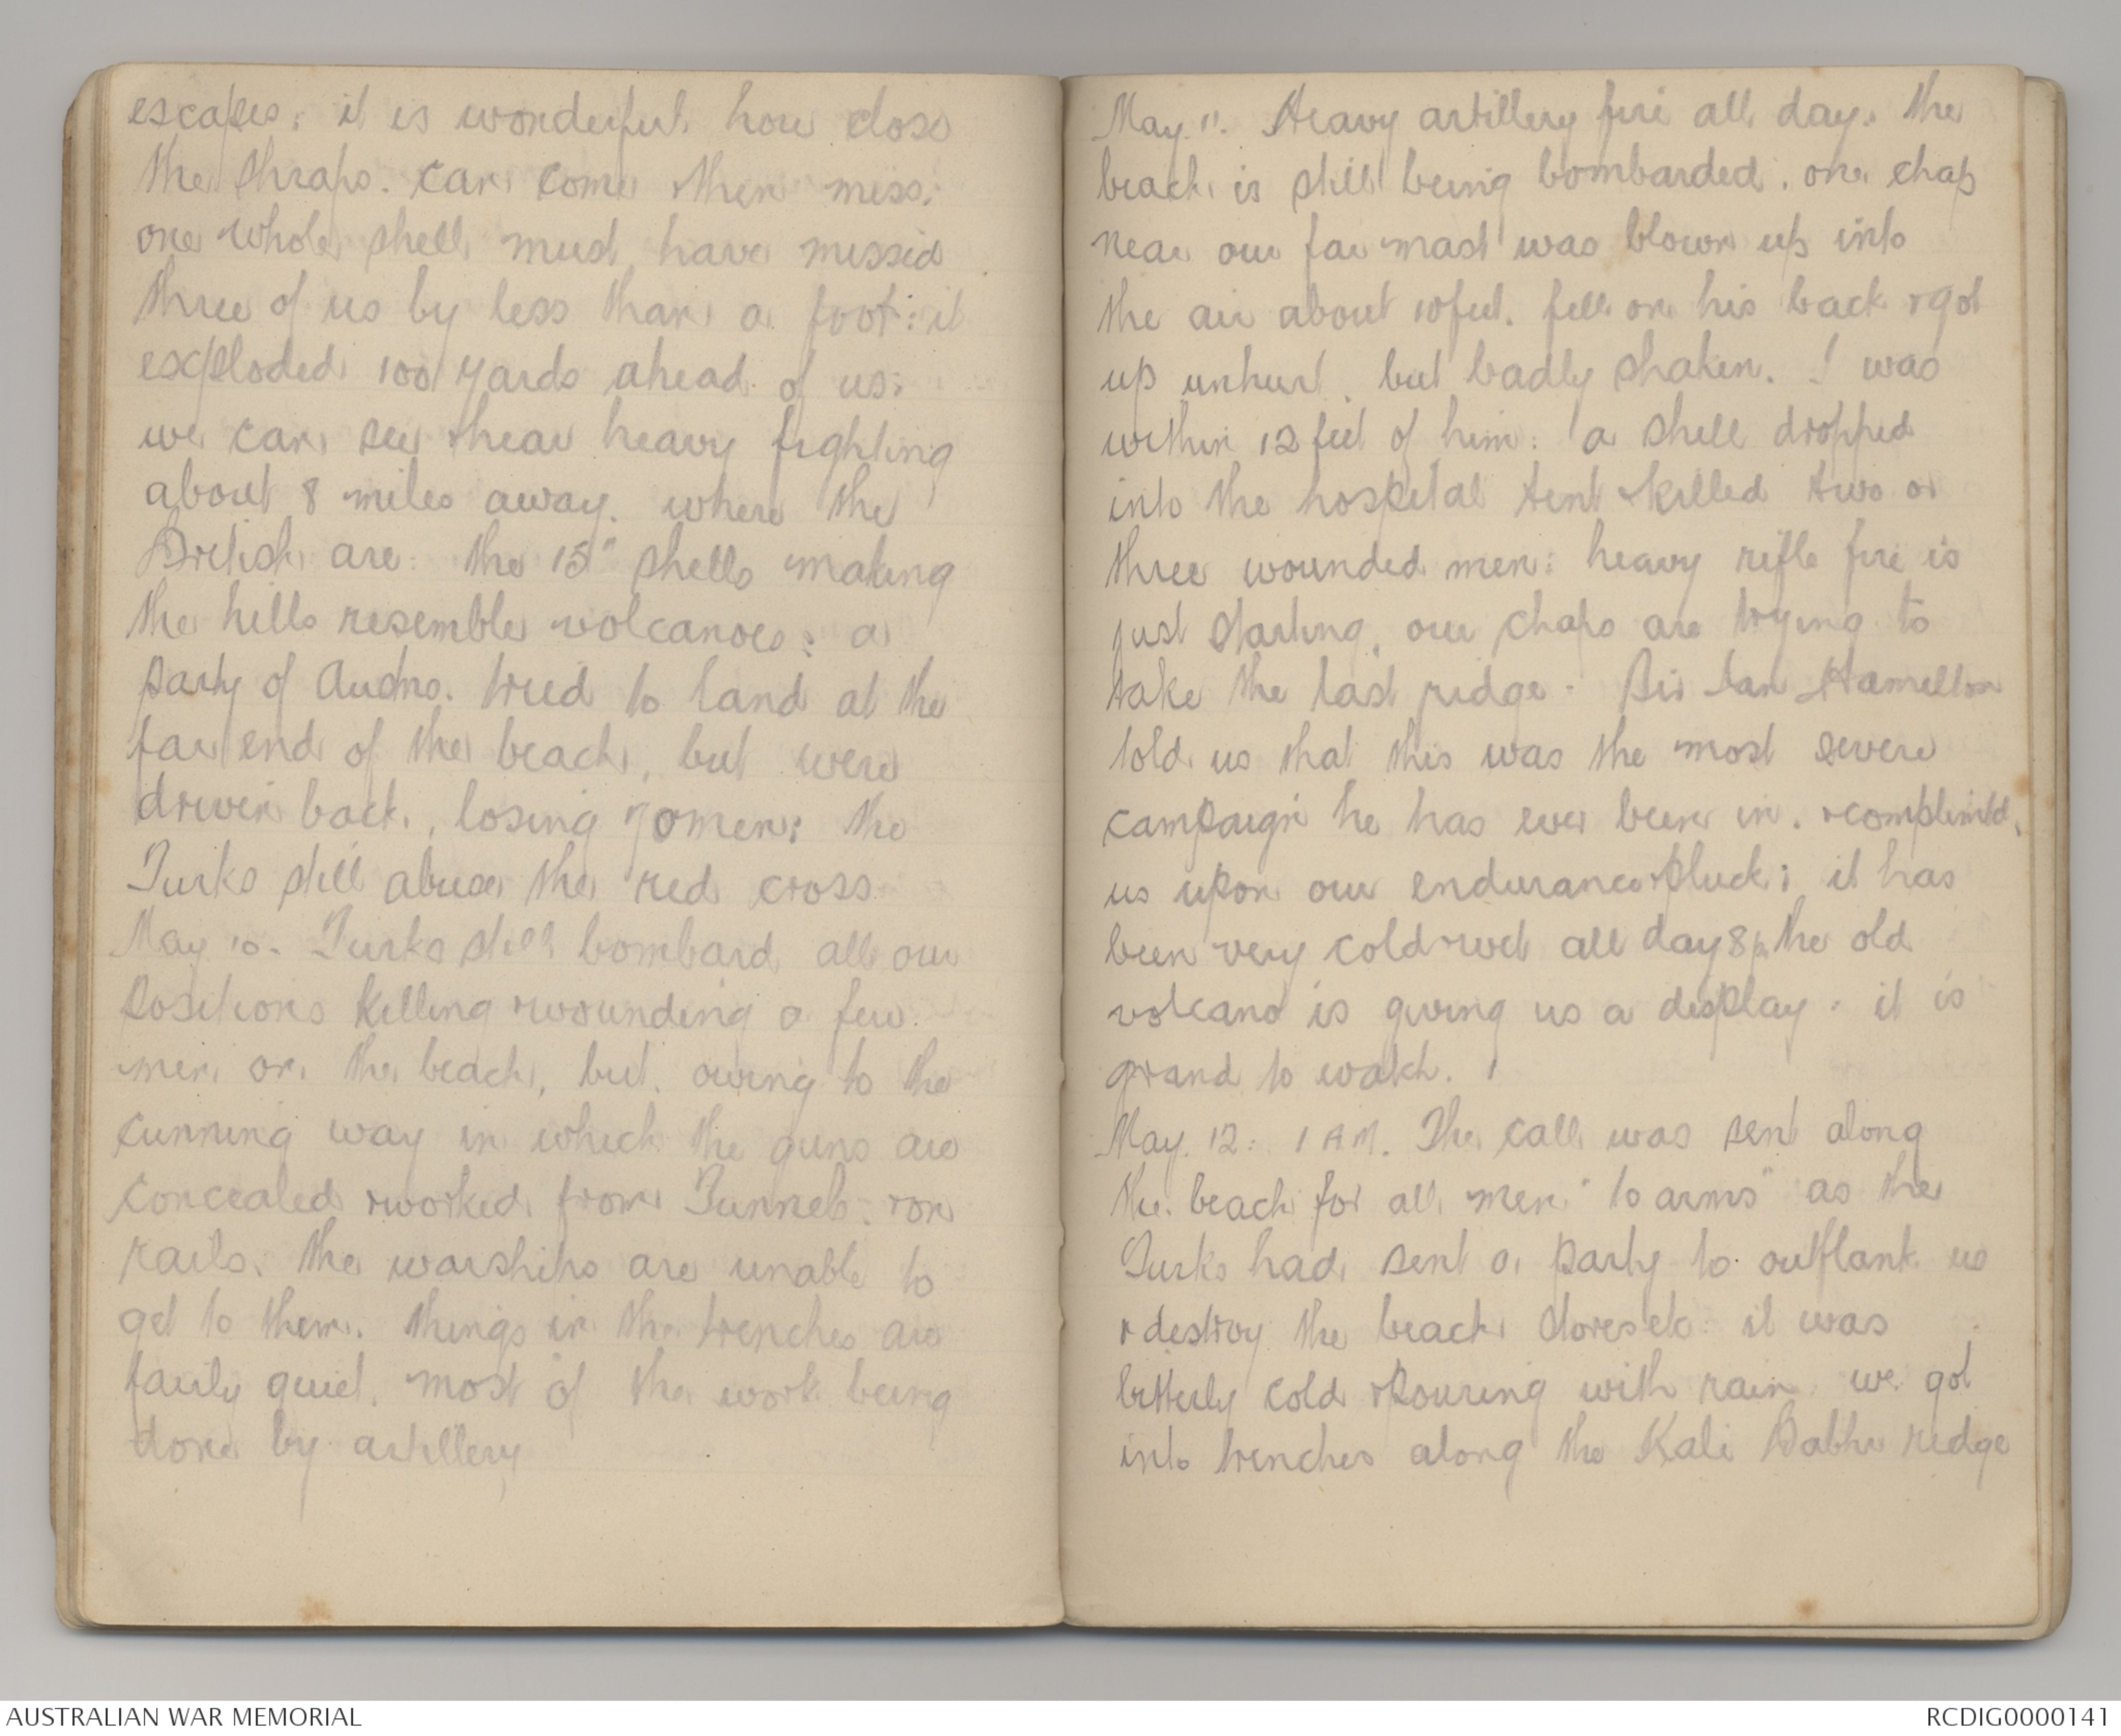 escapes: it is wonderful how close
the shraps. can come then miss:
one whole shell must have missed
three of us by less than a foot: it
exploded 100 yards ahead of us:
we can see & hear heavy fighting
about 8 miles away. where the
British are: the 15" shells making
the hills resemble volcanoes: a
party of Austns. tried to land at the
far end of the beach, but were
driven back, losing 70 men: the
Turks still abuse the red cross
May 10. Turks still bombard all our
positions killing & wounding a few
men on the beach, but owing to the
cunning way in which the guns are
concealed & worked from Tunnels. & on
rails. the warships are unable to
get to them. things in the trenches are
fairly quiet. most of the work being
done by artillery
May 11. Heavy artillery fire all day. the
beach is still being bombarded. one chap
near our far mast was blown up into
the air about 10 feet. fell on his back & got
up unhurt, but badly shaken. I was
within 12 feet of him: a shell dropped
into the hospital tent & killed two or
three wounded men: heavy rifle fire is
just starting, our chaps are trying to
take the last ridge. Sir Ian Hamilton
told us that this was the most severe
campaign he has ever been in. & complimtd.
us upon our endurance & pluck: it has
been very cold & wet all day 8p. the old
volcano is giving us a display. it is
grand to watch.
May. 12: 1 AM. The call was sent along
the beach for all men "to arms" as the
Turks had sent a party to outflank us
& destroy the beach stores etc: it was
bitterly cold & pouring with rain we got
into trenches along the Kali Babhe ridge
AUSTRALIAN WAR MEMORIAL
RCDIG0000141